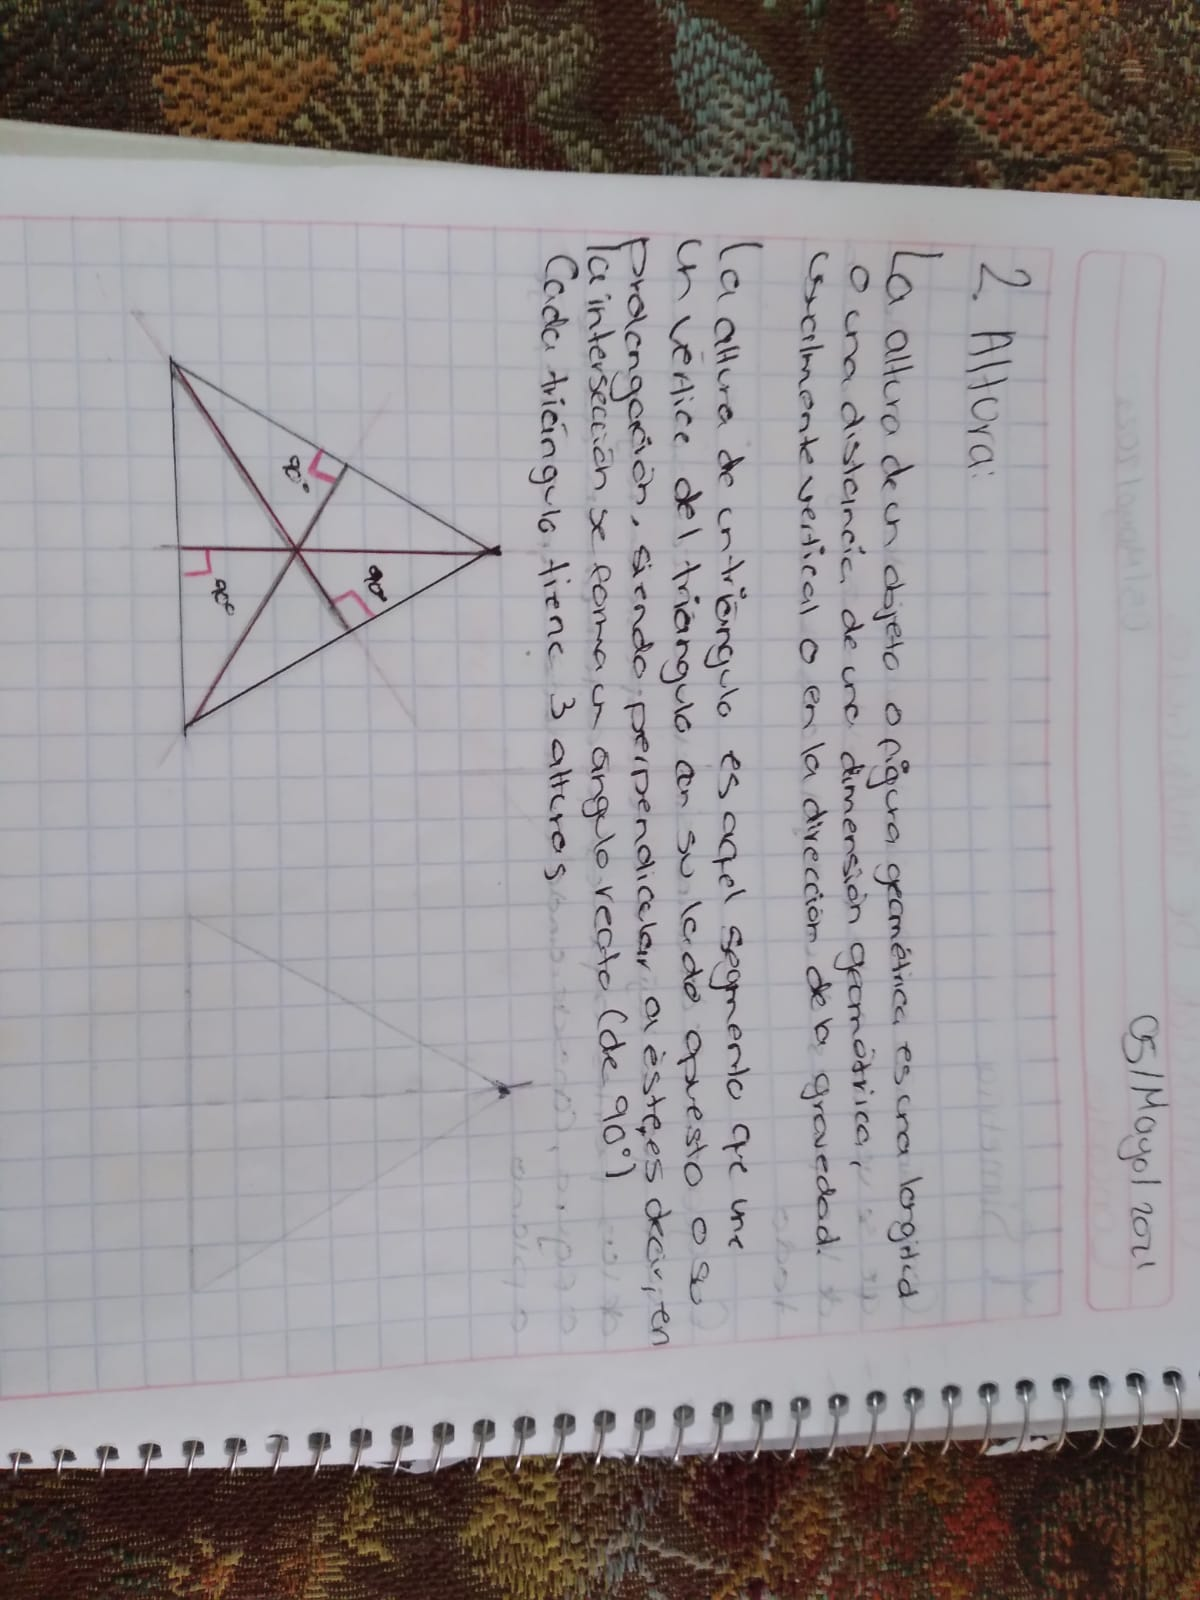 05/Mayo/2021
2. Altura:
La altura de un objeto o figura geométrica es una longitud
o una distancia de una dimensión geométrica,
usualmente vertical o en la dirección de la gravedad.
La altura de un triángulo es aqel segmento qe une
un vértice del triángulo con su lado opuesto o su
prolongación, siendo perpendicular a éste, es decir, en
la intersección se forma un ángulo recto (de 90°)
Cada triángulo tiene 3 alturas
90°
90°
90°